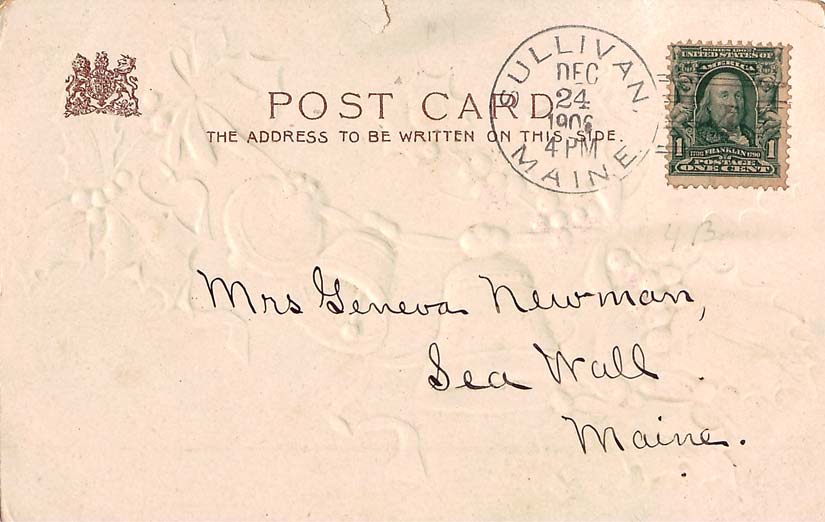 POST CARD
THE ADDRESS TO BE WRITTEN ON THIS SIDE.
SULLIVAN,
DEC
24
1906
4 PM
MAINE.
SERIES 1902
UNITED STATES OF
AMERICA
1 1706 FRANKLIN 1790 1
POSTAGE
ONE CENT
Mrs Geneva Newman,
Sea Wall.
Maine.